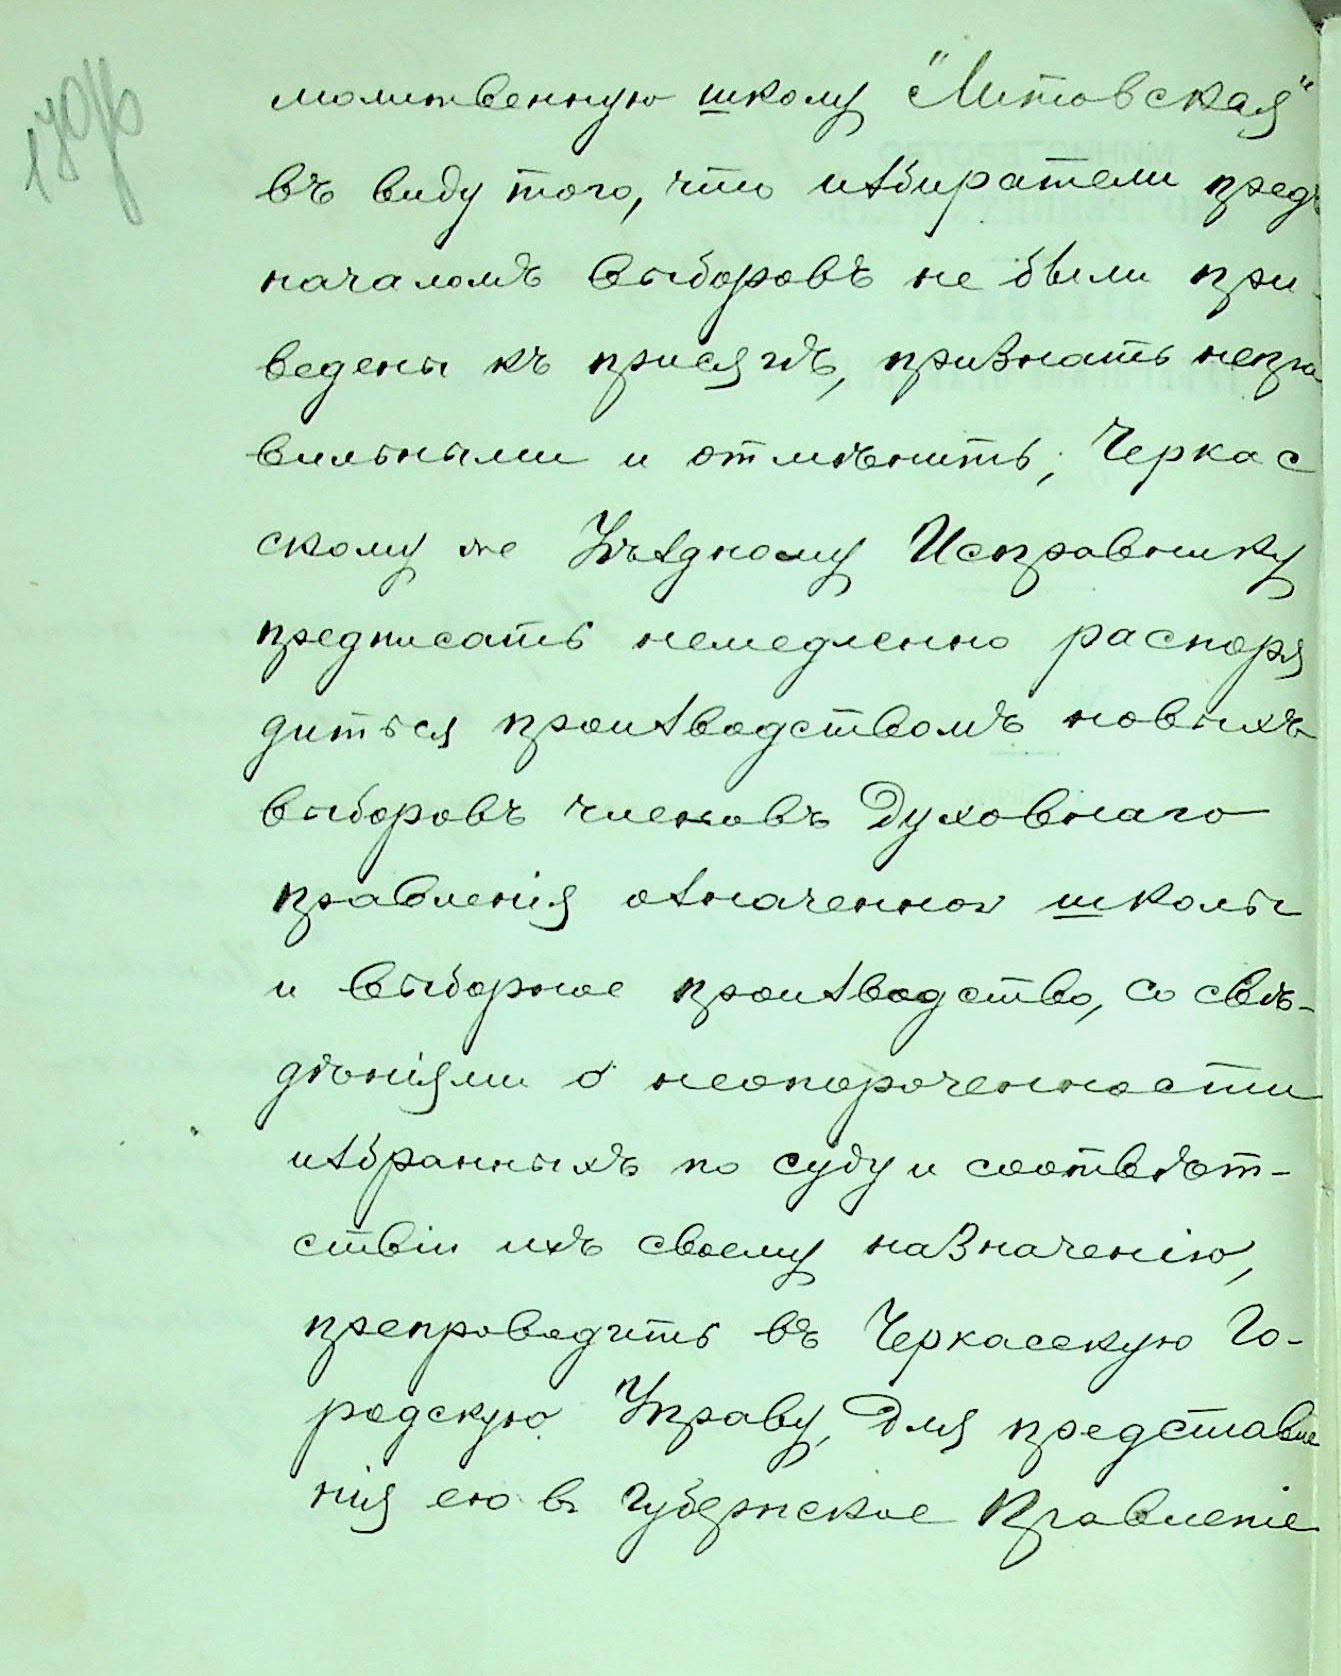 молитвенную школу "Литовская"
въ виду того, что избиратели предъ
началомъ выборовъ не были при-
ведены къ присягѣ, признать непра
вильными и отмѣнить; Черкас
скому же Уѣздному Исправнику
предписать немедленно распоря
диться производствомъ новыхъ
выборовъ членовъ Духовнаго
правленія означенной школы
и выборное производство, со свѣ-
дѣніями о неопороченности
избранныхъ по суду и соотвѣт-
ствіи ихъ своему назначенію,
препроводить въ Черкасскую Го-
родскую Управу, для представле
нія ею въ Губернское Правленіе